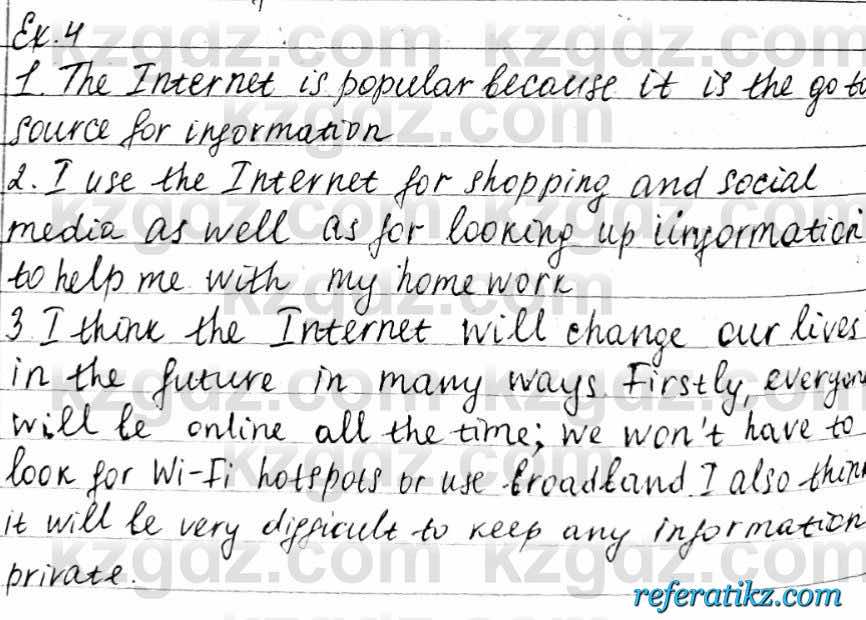 Ex. 4
1. The Internet is popular because it is the go to
source for information
2. I use the Internet for shopping and social
media as well as for looking up iinformation
to help me with my homework
3 I think the Internet will change our lives
in the future in many ways. Firstly, everyone
will be online all the time; we won't have to
look for Wi-Fi hotspots or use broadband I also think
it will be very difficult to keep any information
private.
kzgdz.com
referatikz.com